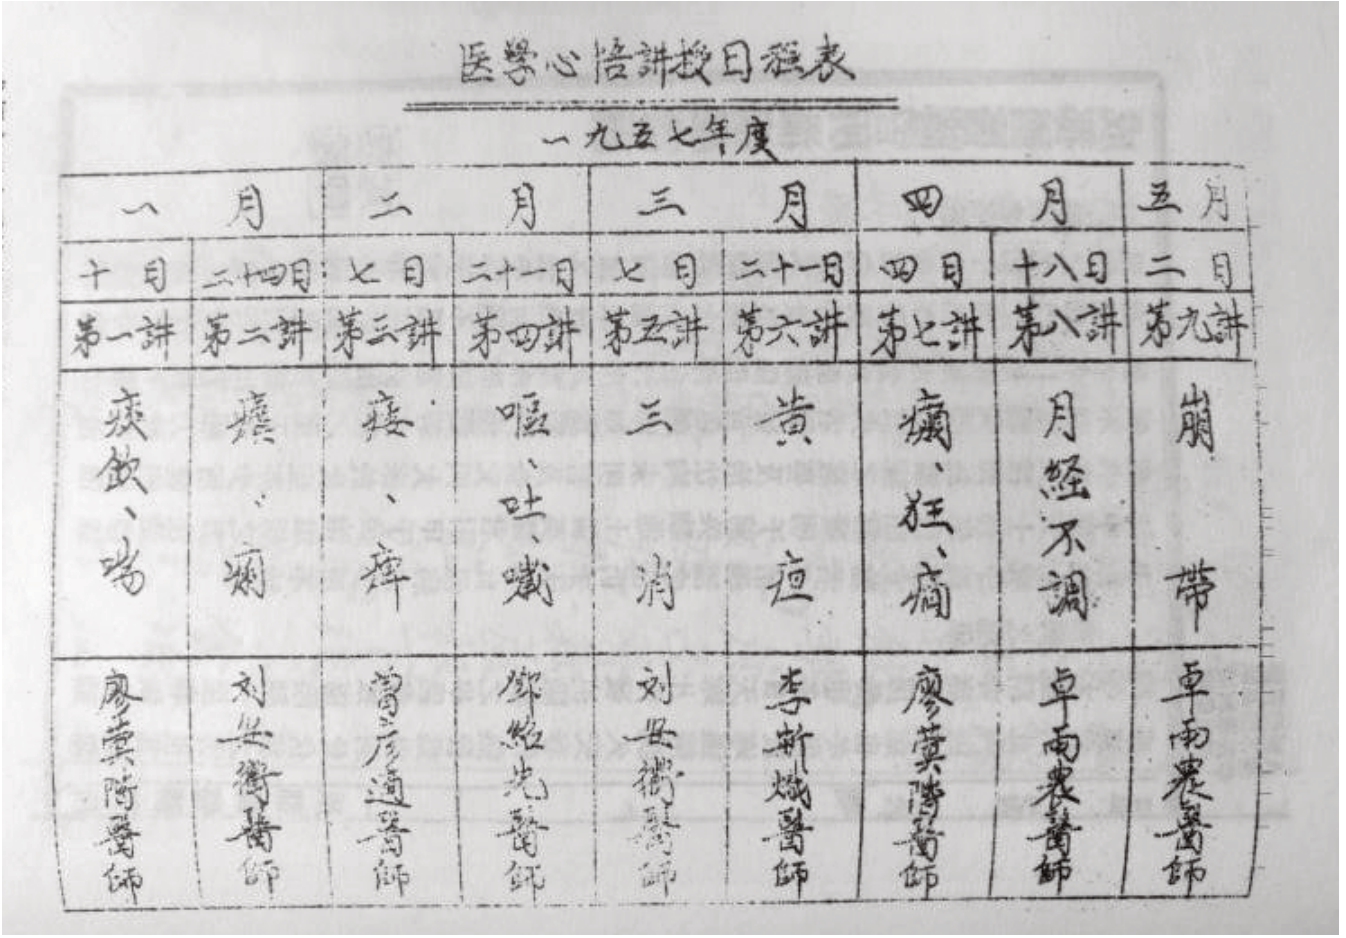 医學心悟讲授日程表
一九五七年度
一月 二月 三月 四月 五月
十日 二十四日 七日 二十一日 七日 二十一日 四日 十八日 二日
第一讲 第二讲 第三讲 第四讲 第五讲 第六讲 第七讲 第八讲 第九讲
痰飲、喘 瘧、痢 痿、痺 嘔、吐、噦 三消 黄疸 癲、狂、癇 月经不調 崩帶
廖蓂階醫師 刘安衢醫師 曾彦適醫師 鄧紹先醫師 刘安衢醫師 李斯熾醫師 廖蓂階醫師 卓雨農醫師 卓雨農醫師